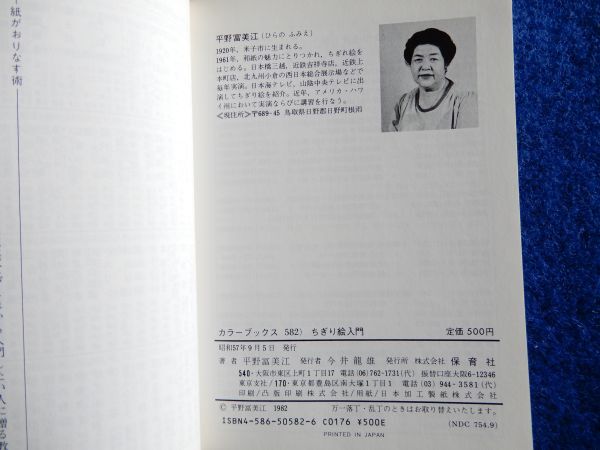 紙がおりなす術
平野富美江(ひらの ふみえ)
1920年、米子市に生まれる。
1961年、和紙の魅力にとりつかれ、ちぎれ絵を
はじめる。日本橋三越、近鉄吉祥寺店、近鉄上
本町店、北九州小倉の西日本総合展示場などで
毎年実演。日本海テレビ、山陰中央テレビに出
演してちぎり絵を紹介。近年、アメリカ・ハワ
イ州において実演ならびに講習を行なう。
≪現住所≫〒689-45 鳥取県日野郡日野町根雨
カラーブックス 582) ちぎり絵入門 定価 500円
昭和57年9月5日 発行
著者 平野富美江 発行者 今井龍雄 発行所 株式会社 保育社
540・大阪市東区上町1丁目17 電話 06(762)1731(代) 振替口座大阪6-12346
東京支社/170・東京都豊島区南大塚1丁目1 電話 03(944)3581(代)
印刷/凸版印刷株式会社/用紙/日本加工製紙株式会社
© 平野富美江 1982 万一落丁・乱丁のときはお取り替えいたします。
ISBN4-586-50582-6 C0176 ¥500E
PRINTED IN JAPAN (NDC 754.9)